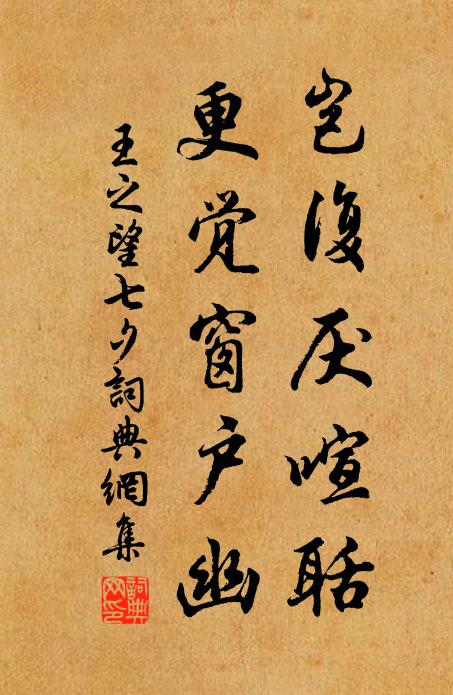 岂復厌喧聒
更觉窗户幽
王之望七夕詞典網集
詞典網印